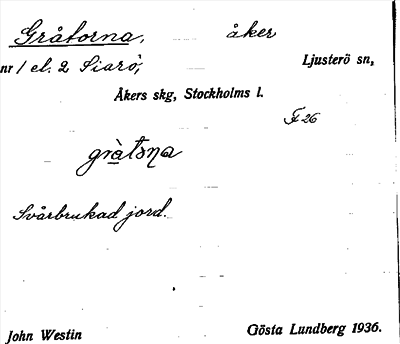 Gråtorna, åker
nr 1 el. 2 Siarö, Ljusterö sn,
Åkers skg, Stockholms l.
F 26
gràtɔɳa
Svårbrukad jord.
John Westin Gösta Lundberg 1936.